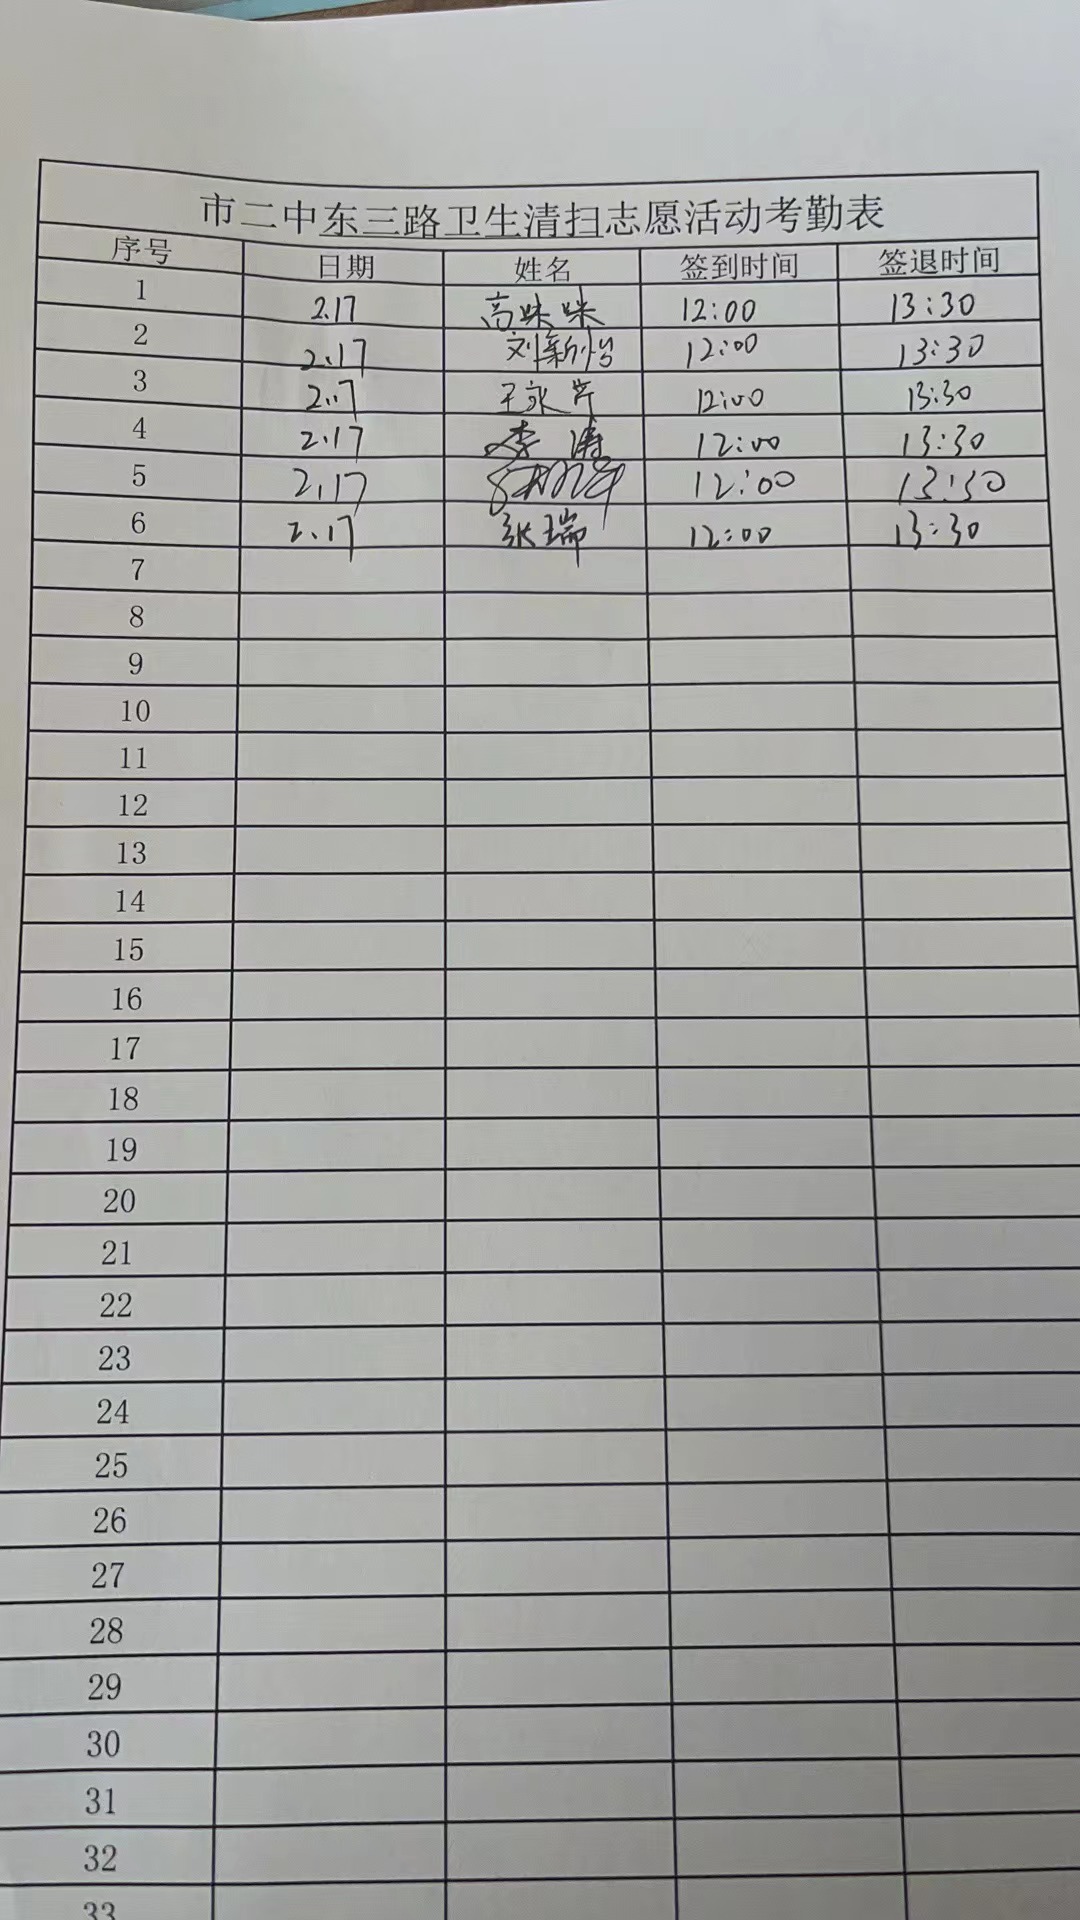 市二中东三路卫生清扫志愿活动考勤表
序号 日期 姓名 签到时间 签退时间
1 2.17 高咪咪 12:00 13:30
2 2.17 刘新怡 12:00 13:30
3 2.17 王永芹 12:00 13:30
4 2.17 李涛 12:00 13:30
5 2.17 12:00 13:30
6 2.17 张瑞 12:00 13:30
7
8
9
10
11
12
13
14
15
16
17
18
19
20
21
22
23
24
25
26
27
28
29
30
31
32
33